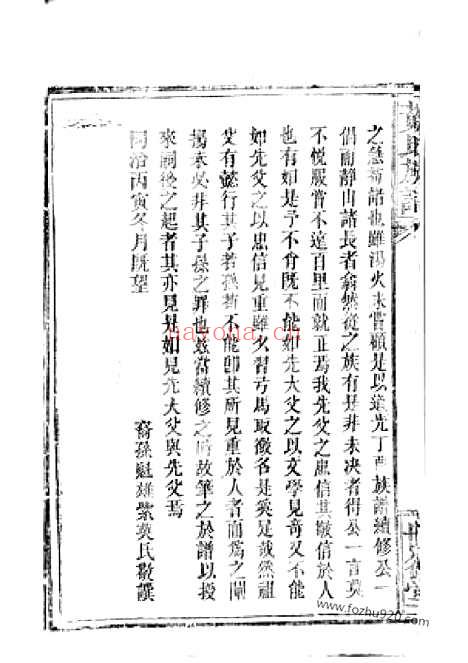 族譜
之急就諾也雖湯火未嘗顧是以道光丁酉族譜續修公一
倡而靜山諸長者翕然從之族有是非未決者得公一言莫
不悅服曾不遠百里而就正焉我先父之忠信其敬信於人
也有如是予不肖既不能如先大父之以文學見奇又不能
如先父之以忠信見重雖久習弓馬取微名是奚足哉然祖
父有懿行其子若孫不能即其所見重於人者而爲之闡
揚表
非其子孫之罪也茲當續修之
故筆之於譜以授
來嗣後之起者其亦見是如見先大父與先父焉
同治丙寅冬月既望
裔孫魁雄紫英氏敬譔
nayona.cn
www.fozhu920.com